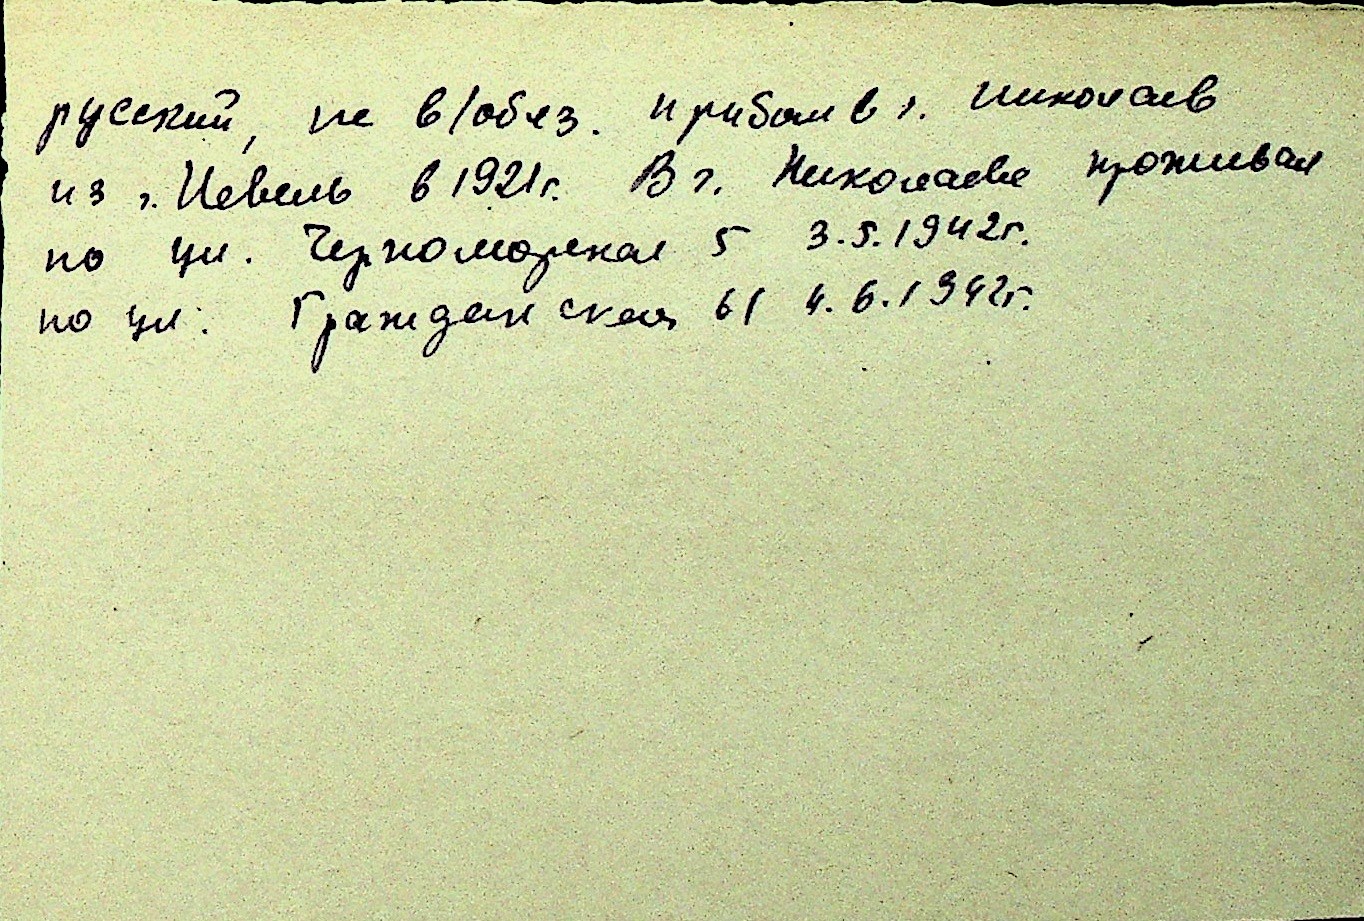 русский, не в/обяз. прибыл в г. Николаев
из г. Невель в 1921г. В г. Николаеве проживал
по ул. Черноморская 5 3.5.1942г.
по ул. Гражданская 61 4.6.1942г.